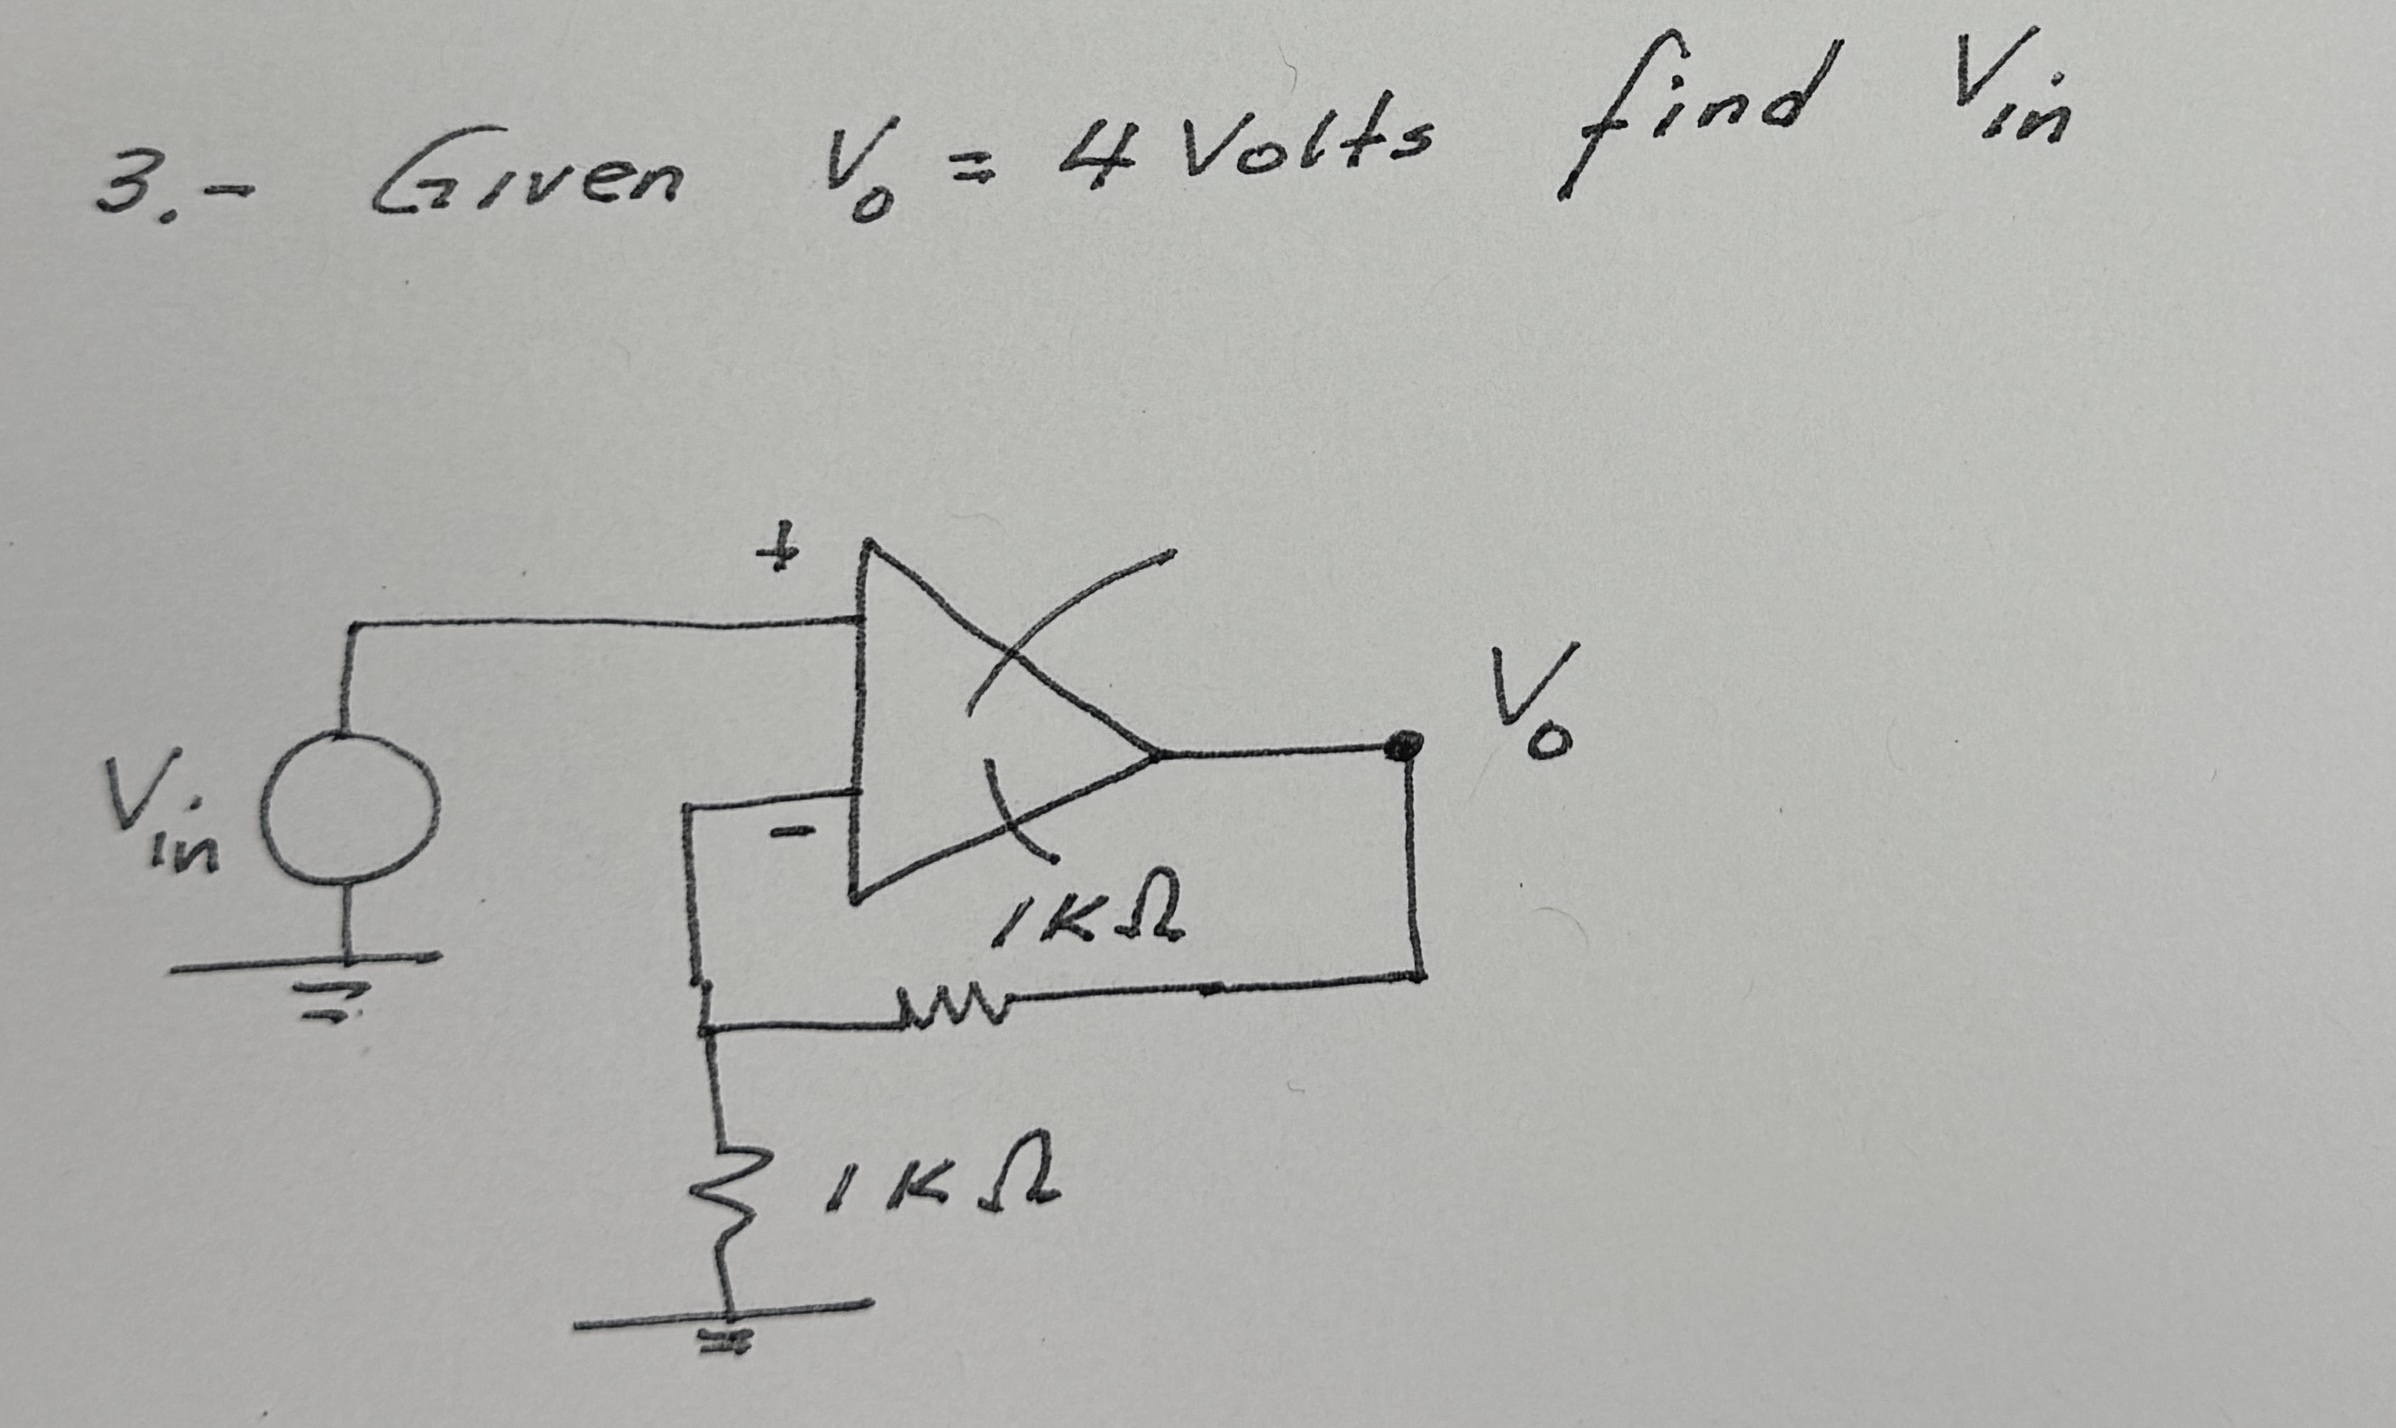 3.- Given V₀ = 4 Volts find Vin
+
V₀
Vin
-
1KΩ
1KΩ